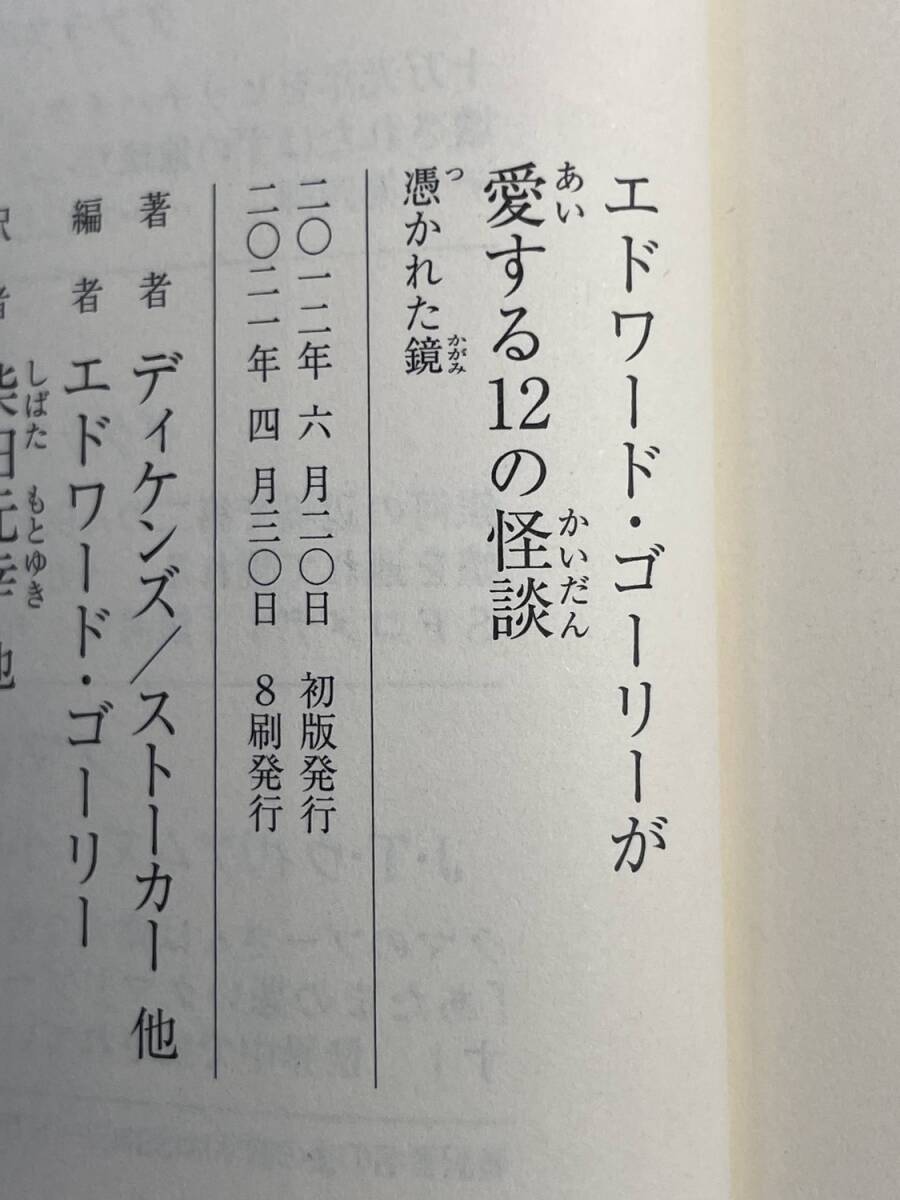 エドワード・ゴーリーが
愛する12の怪談
あい
かいだん
憑かれた鏡
つ
かがみ
二〇一二年 六 月二〇日 初版発行
二〇二一年 四 月三〇日 8刷発行
著 者 ディケンズ/ストーカー 他
編 者 エドワード・ゴーリー
訳 者 柴田元幸 他
しばた もとゆき